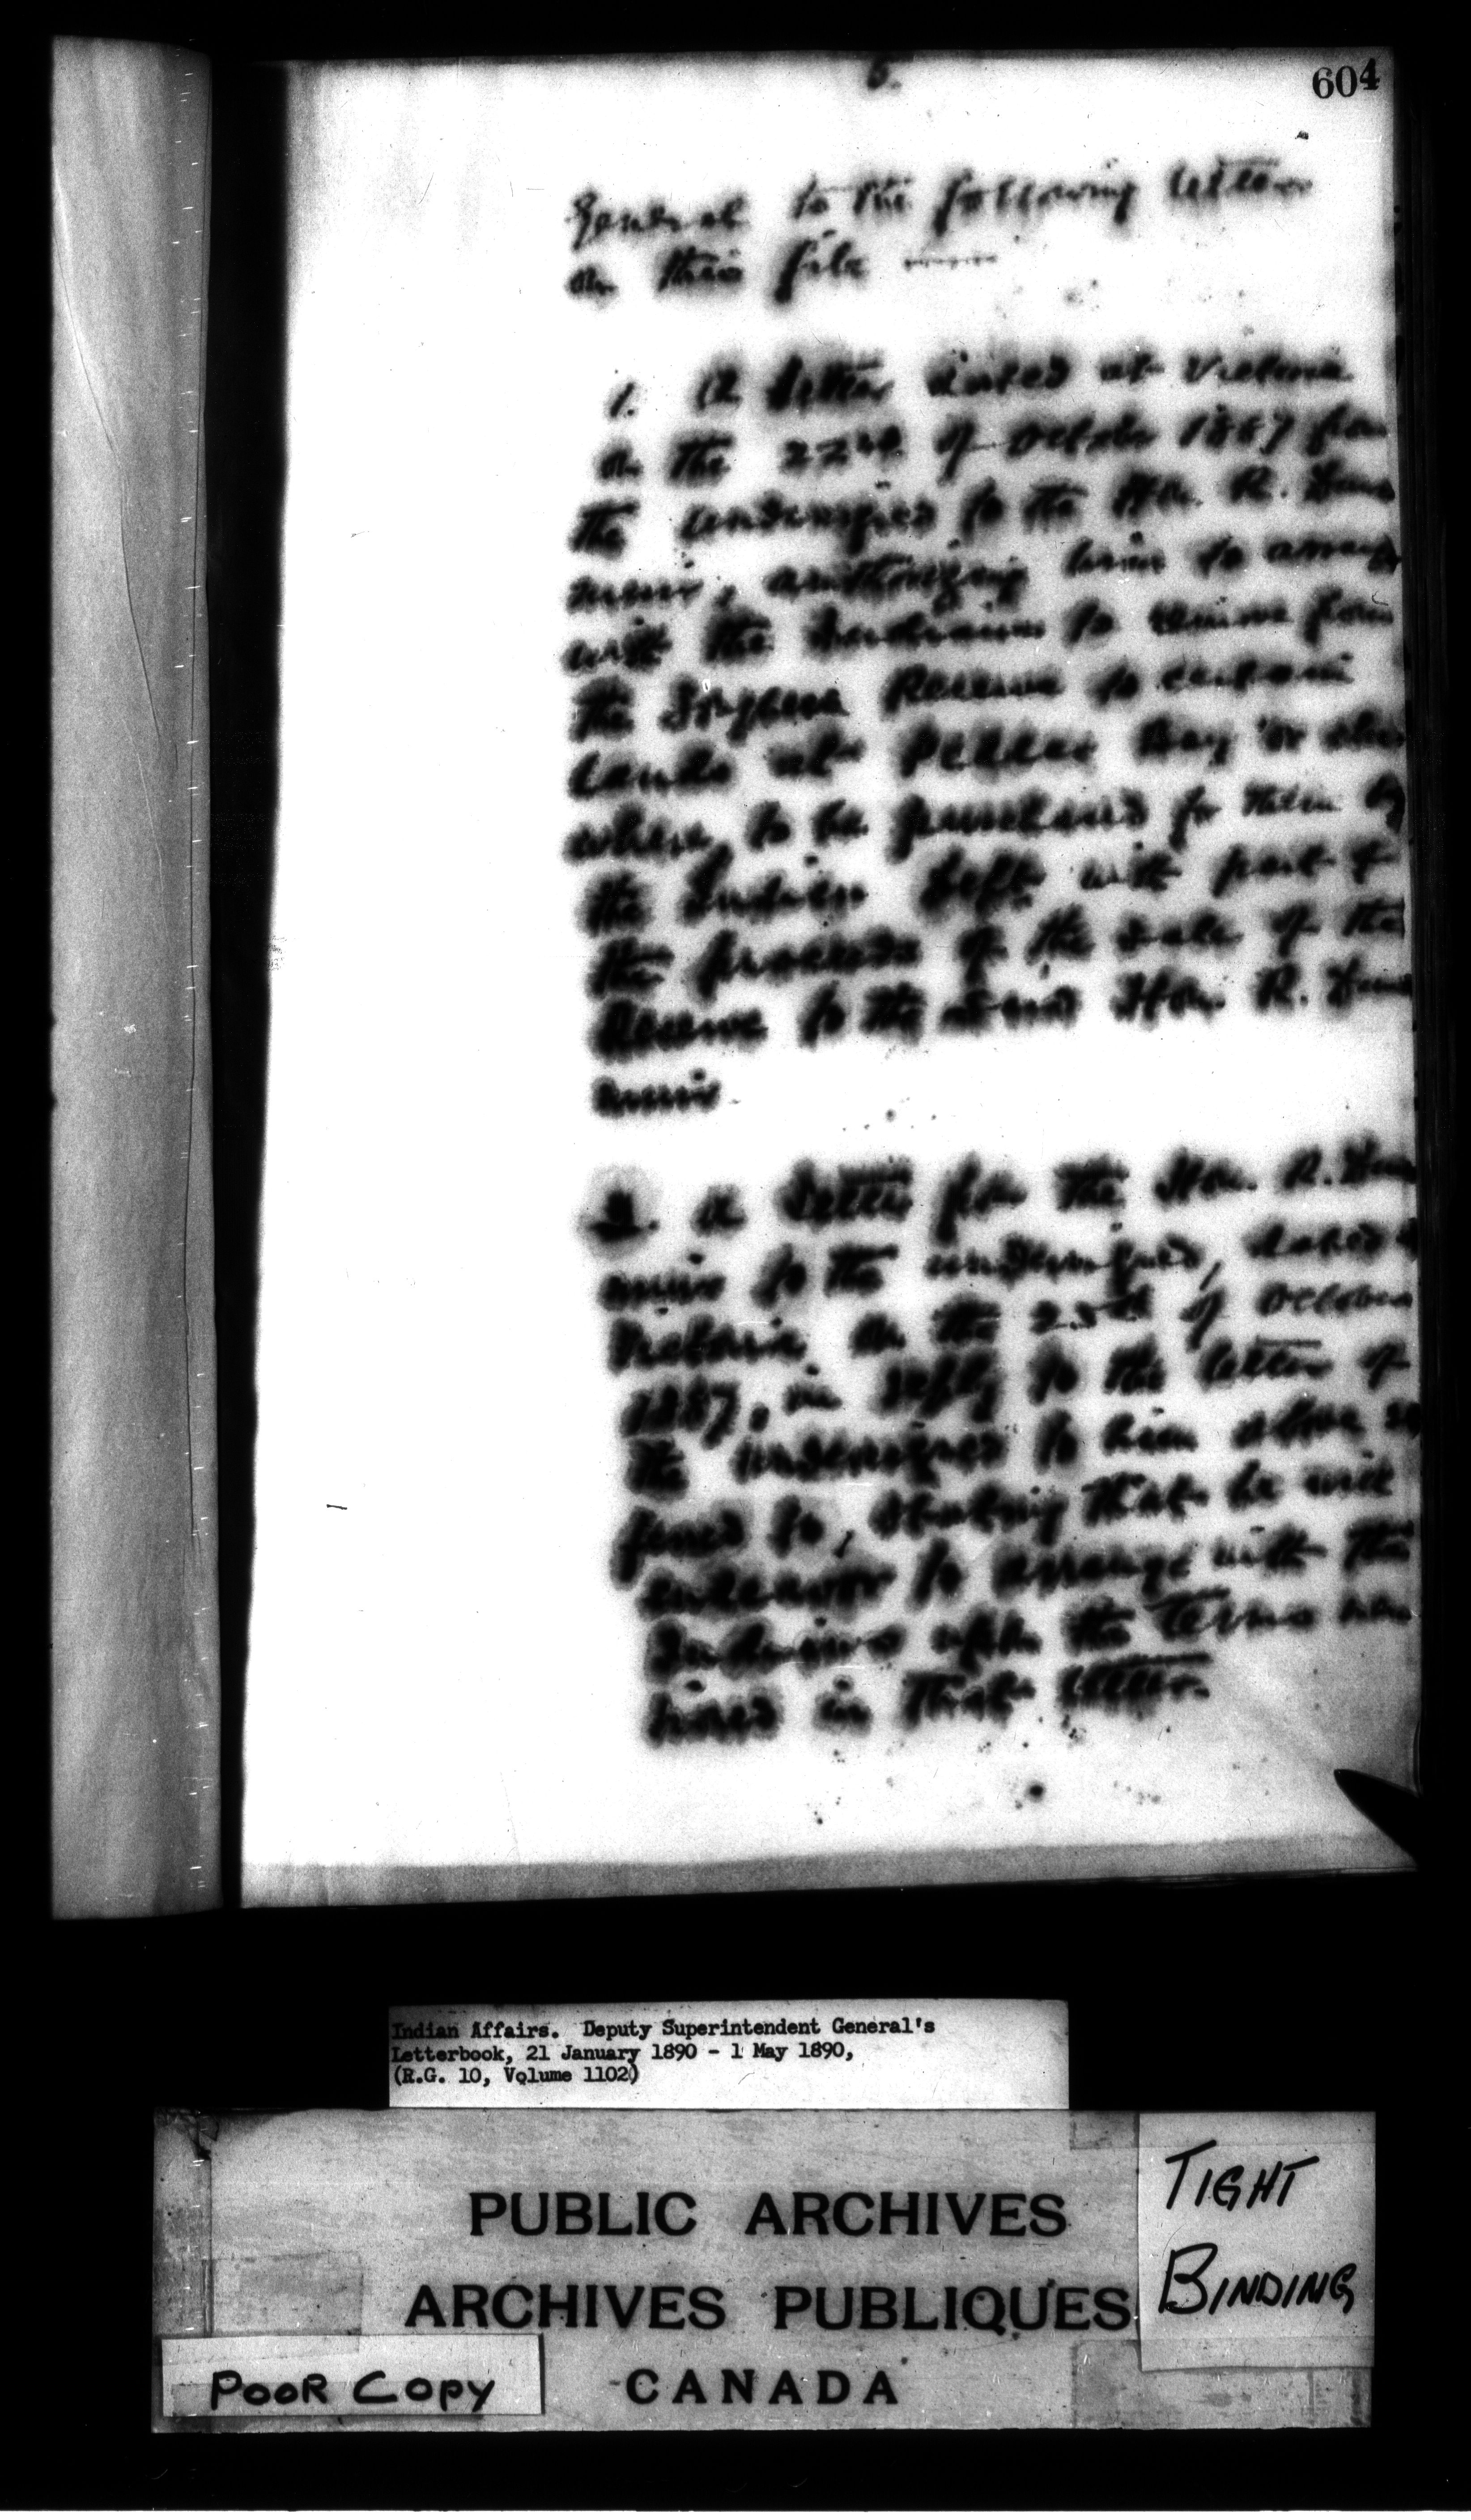 5.
604
General to the following letters
on this file
1. A letter dated at Victoria
on the 22nd of October 1887 from
the undersigned to the Hon. R. Duns
muir, authorizing him to arrange
with the Indians to remove from
the Songhees Reserve to certain
lands at Pedder Bay or else
where, to be purchased for them by
the Indian Dept. with part of
the proceeds of the sale of the
Reserve to the said Hon. R. Duns
muir
2. A letter from the Hon. R. Duns
muir to the undersigned, dated
Victoria on the 25th of October
1887, in reply to the letter of
the undersigned to him above re
ferred to, stating that he will
endeavor to arrange with the
Indians upon the terms men
tioned in that letter.
Indian Affairs. Deputy Superintendent General's
Letterbook, 21 January 1890 - 1 May 1890,
(R.G. 10, Volume 1102)
PUBLIC ARCHIVES
ARCHIVES PUBLIQUES
CANADA
TIGHT
BINDING
POOR COPY